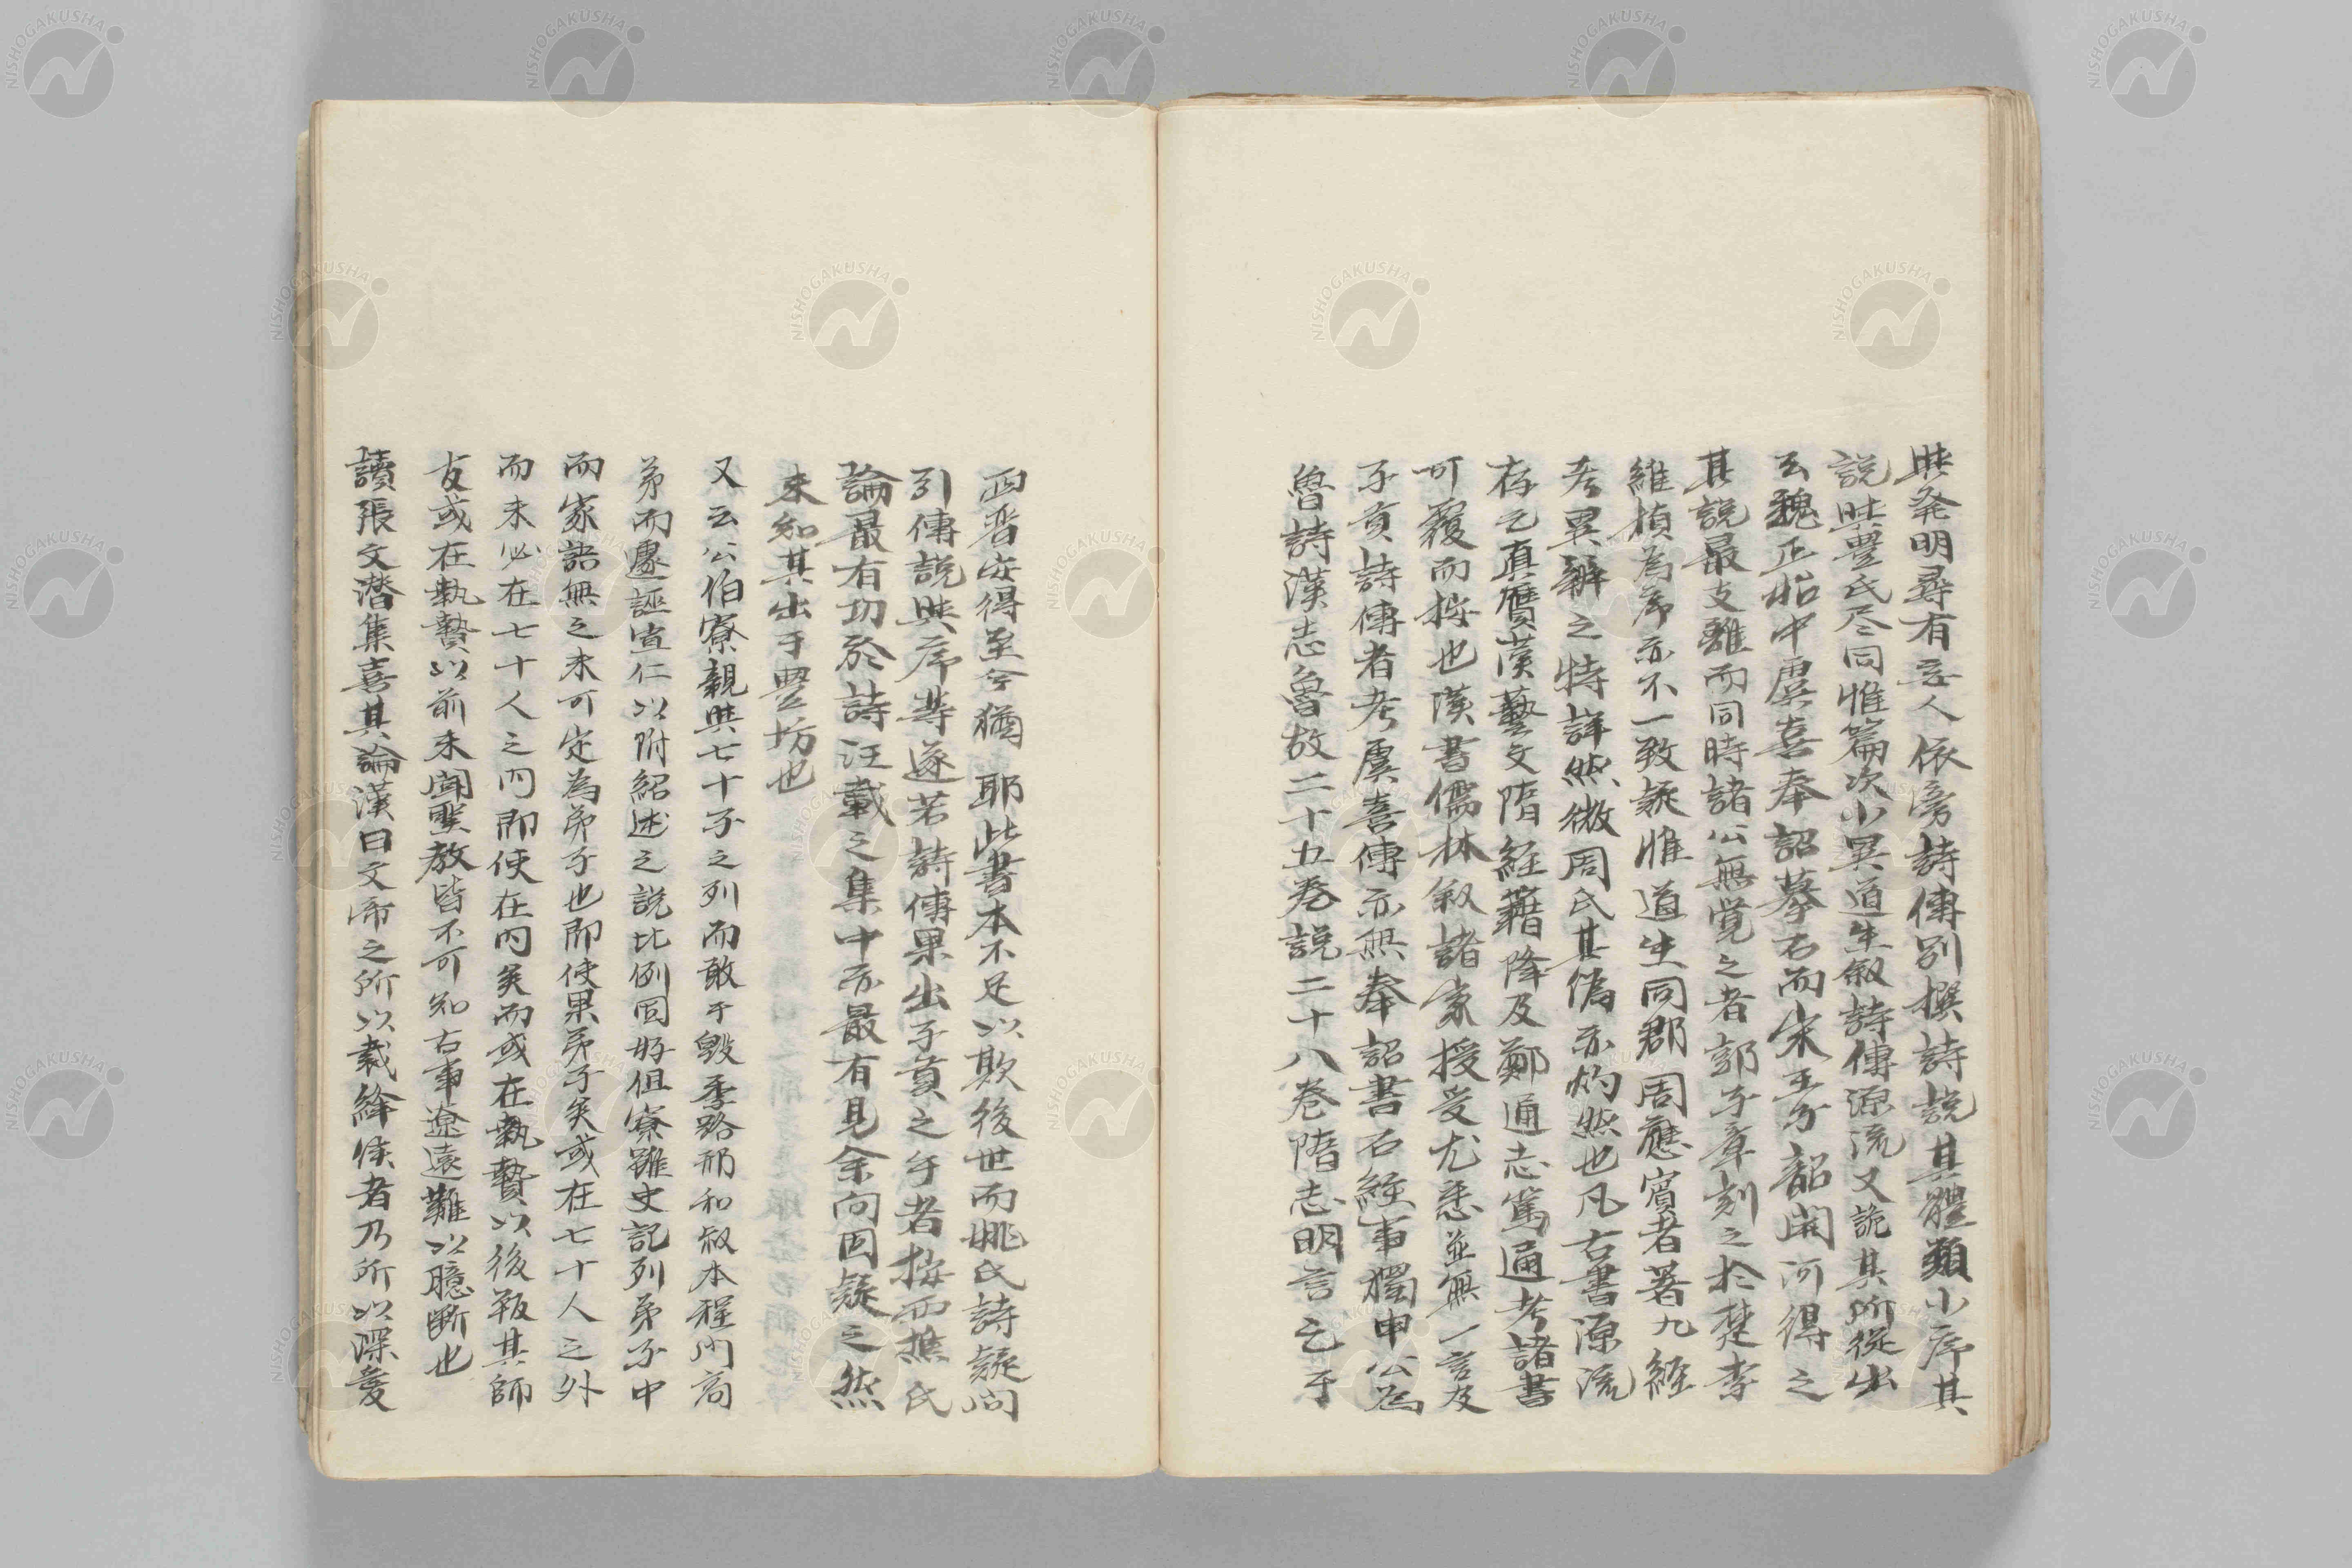 與発明尋有妄人依旁詩傳別撰詩說其體類小序其
說與豐氏尽同惟篇次小異道生叙詩傳源流又詭其所從出
云魏正始中虞喜奉詔摹石而宋王子韶開河得之
其說最支離而同時諸公無覚之者郭子章刻之於楚李
維楨為序亦不一致疑惟道生同郡周應賓者著九經
考異辨之特詳然微周氏其偽亦灼然也凡古書源流
存亡真贋漢藝文隋經籍降及鄭通志馬通考諸書
可覆而按也漢書儒林叙諸家授受尤悉並無一言及
子貢詩傳者考虞喜傳亦無奉詔書石經事獨申公為
魯詩漢志魯故二十五卷說二十八卷隋志明言亡于
西晋安得至今猶耶此書本不足以欺後世而姚氏詩疑問
引傳說與序幷遂若詩傳果出子貢之手者按而樵氏
論最有切於詩汪載之集中亦最有見余向固疑之然
未知其出于豐坊也
又云公伯寮親與七十子之列而敢于毀季路邢和叔本程門高
弟而遽誣宣仁以附紹述之說比例固好但寮雖史記列弟子中
而家語無之未可定為弟子也即使果弟子矣或在七十人之外
而未必在七十人之內即使在內矣而或在執贄以後叛其師
友或在執贄以前未聞聖教皆不可知古事遼遠難以臆斷也
讀張文潛集喜其論漢曰文帝之所以裁絳侯者乃所以深愛
NISHOGAKUSHA